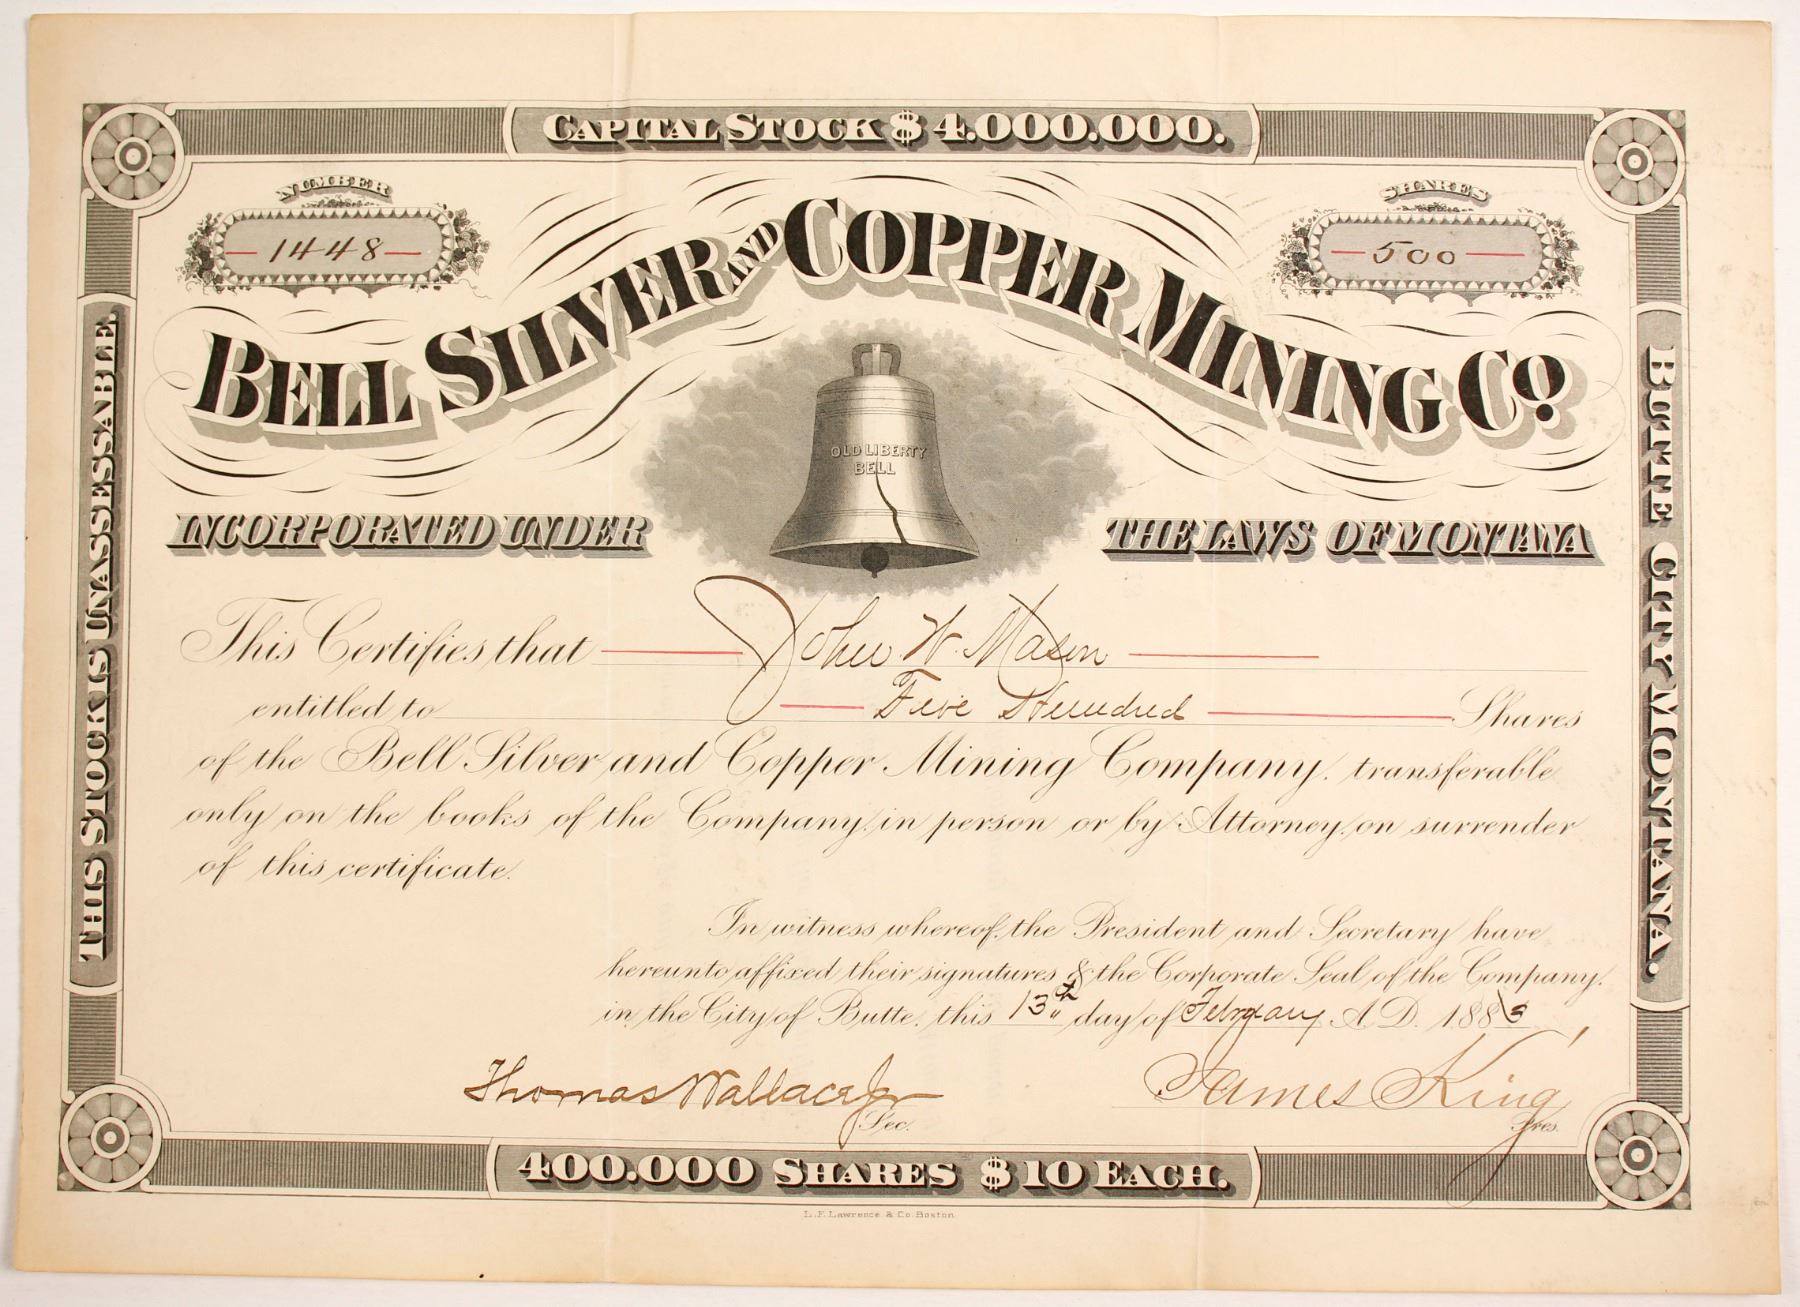 CAPITAL STOCK $ 4.000.000.
NUMBER
1448
SHARES
500
BELL SILVER AND COPPER MINING CO.
OLD LIBERTY
BELL
INCORPORATED UNDER THE LAWS OF MONTANA
THIS STOCK IS UNASSESSABLE.
BUTTE CITY MONTANA.
This Certifies that John W. Mason
entitled to Five Hundred Shares
of the Bell Silver and Copper Mining Company, transferable
only on the books of the Company, in person or by Attorney, on surrender
of this certificate.
In witness whereof, the President and Secretary have
hereunto affixed their signatures & the Corporate Seal of the Company,
in the City of Butte, this 13th day of February A.D. 1883
Thomas Wallace Jr
Sec.
James King
Pres.
400.000 SHARES $10 EACH.
L.F. Lawrence & Co. Boston